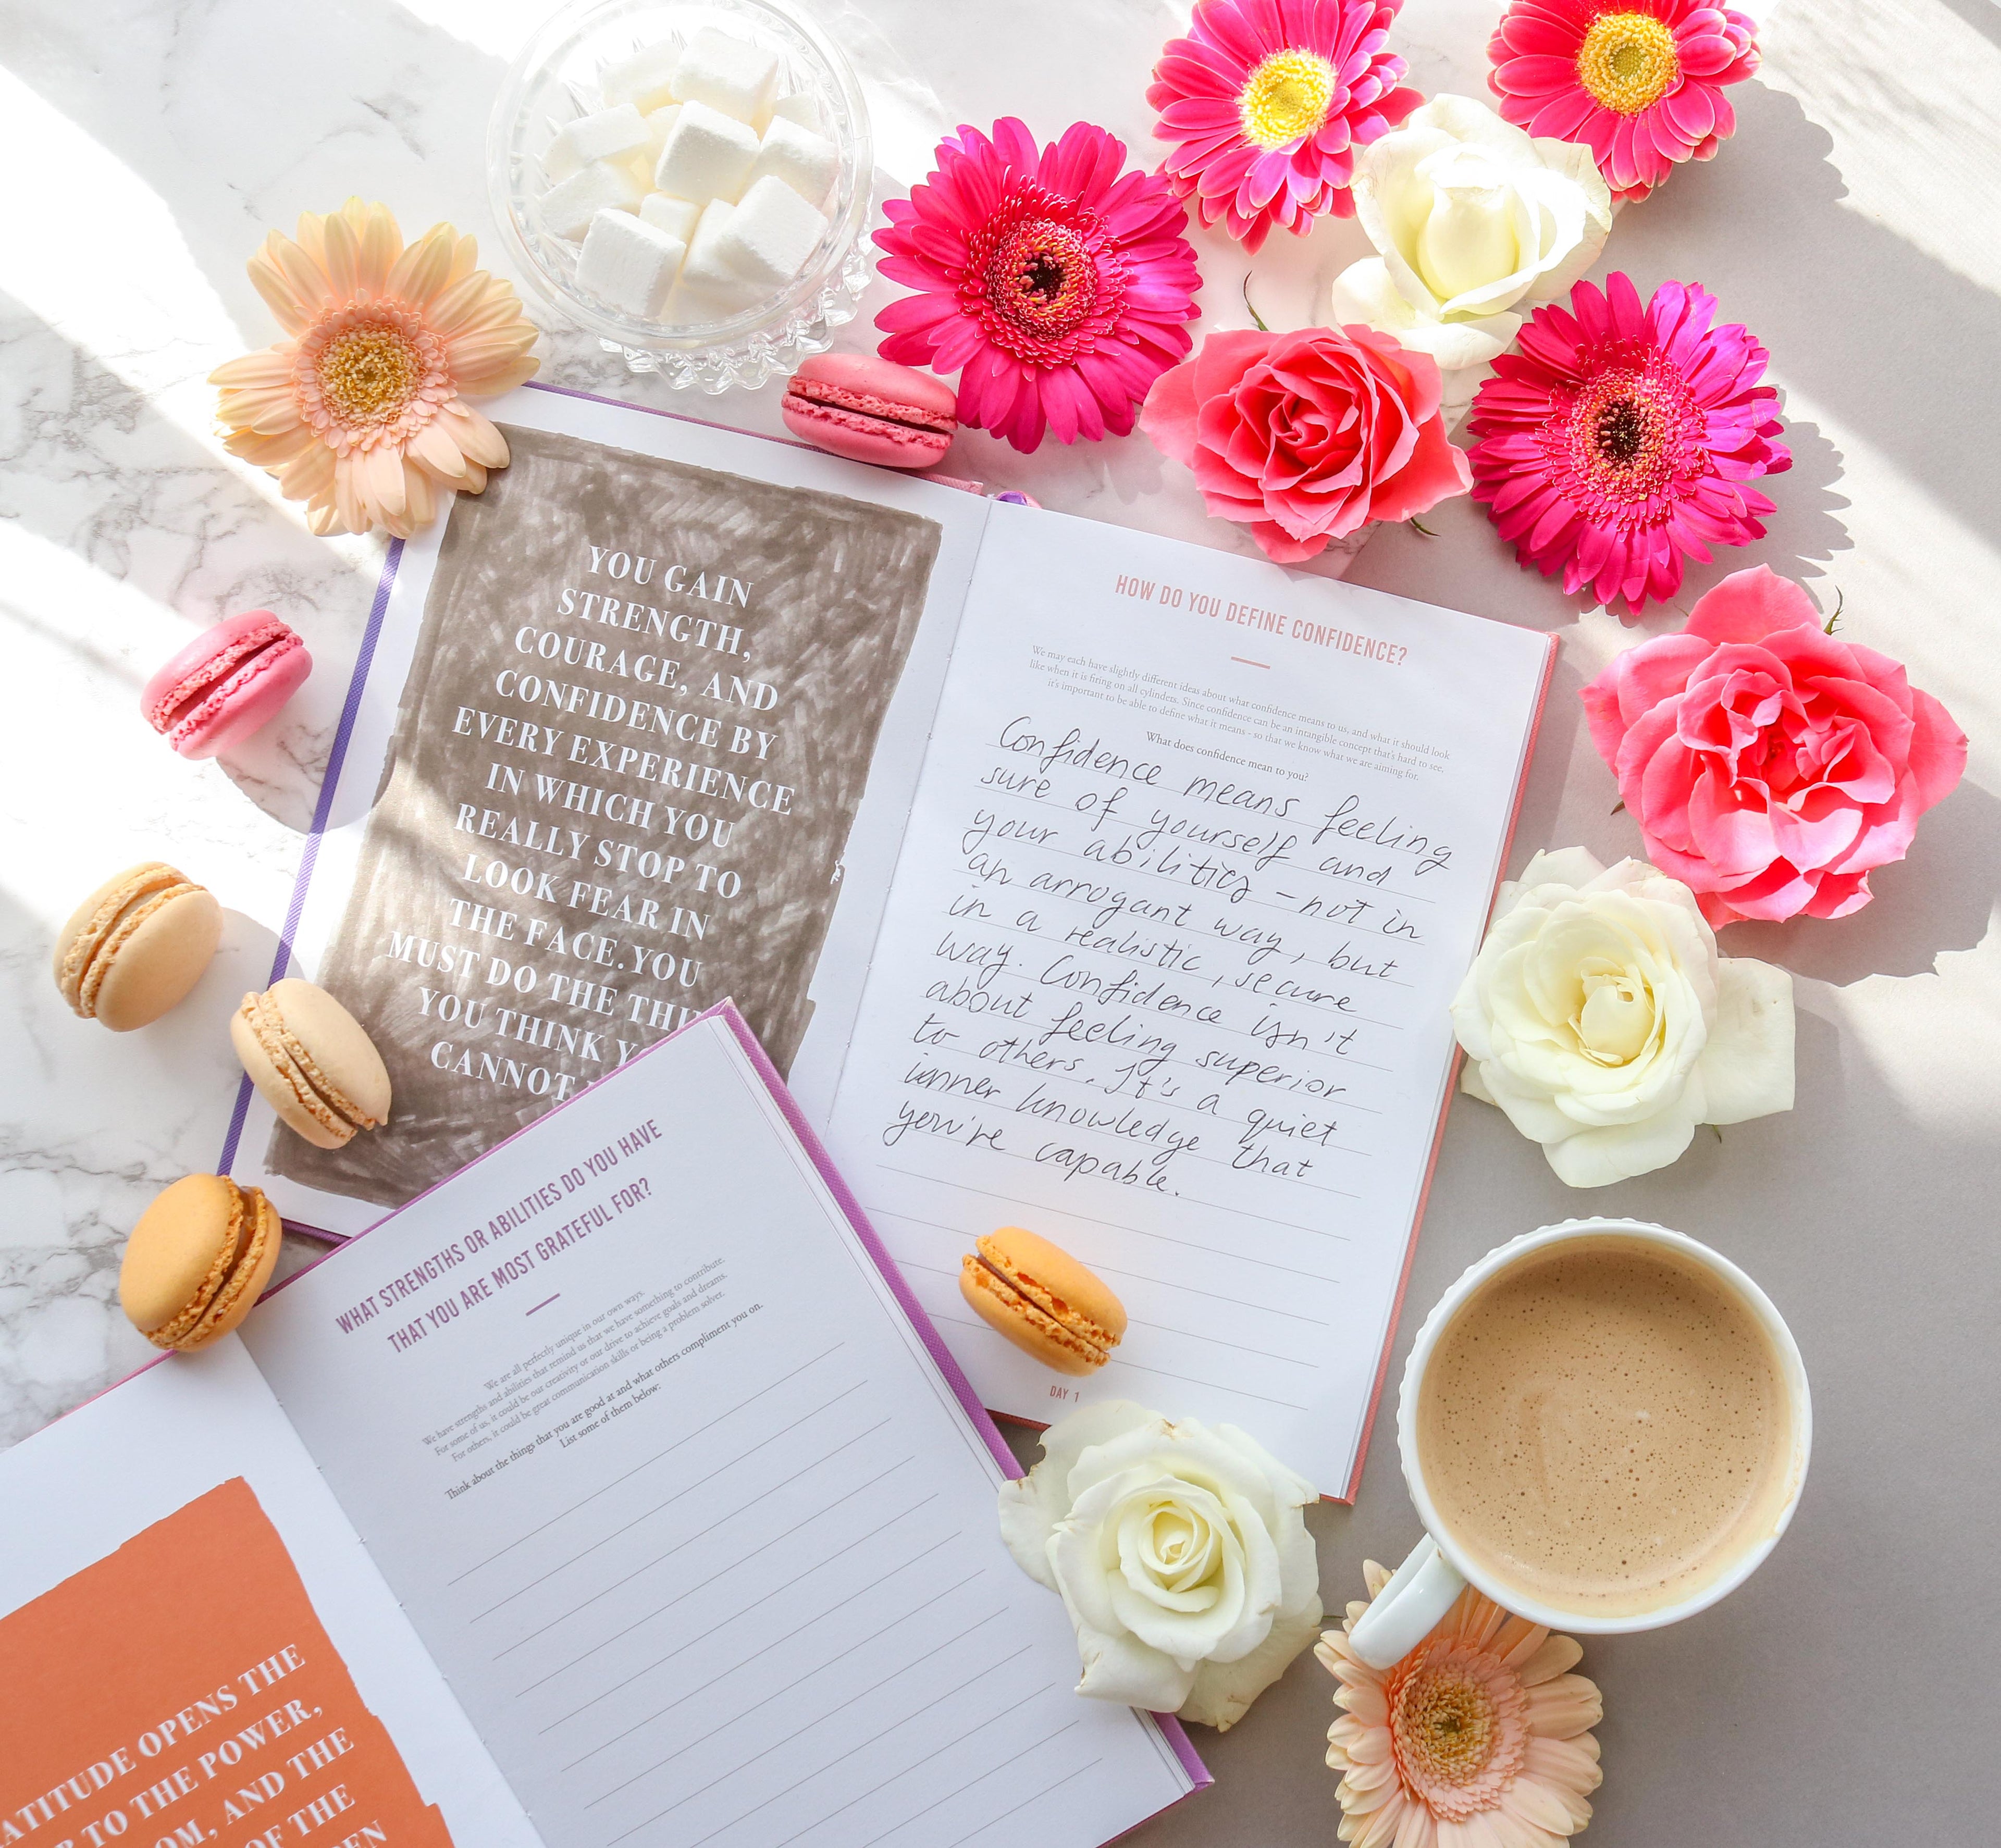 YOU GAIN
STRENGTH,
COURAGE, AND
CONFIDENCE BY
EVERY EXPERIENCE
IN WHICH YOU
REALLY STOP TO
LOOK FEAR IN
THE FACE. YOU
MUST DO THE
YOU THINK
CANNOT
HOW DO YOU DEFINE CONFIDENCE?
We may each have slightly different ideas about what confidence means to us, and what it should look
like when it is firing on all cylinders. Since confidence can be an intangible concept that's hard to see,
it's important to be able to define what it means - so that we know what we are aiming for.
What does confidence mean to you?
Confidence means feeling
sure of yourself and
your abilities - not in
an arrogant way, but
in a realistic, secure
way. Confidence isn't
about feeling superior
to others. It's a quiet
inner knowledge that
you're capable.
DAY 1
WHAT STRENGTHS OR ABILITIES DO YOU HAVE
THAT YOU ARE MOST GRATEFUL FOR?
We are all perfectly unique in our own ways.
We have strengths and abilities that remind us that we have something to contribute.
For some of us, it could be our creativity or our drive to achieve goals and dreams.
For others, it could be great communication skills or being a problem solver.
Think about the things that you are good at and what others compliment you on.
List some of them below:
OPENS THE
TO THE POWER,
AND THE
OF THE